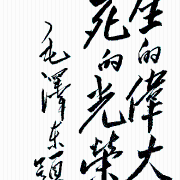 生的偉大
死的光榮
毛澤東題